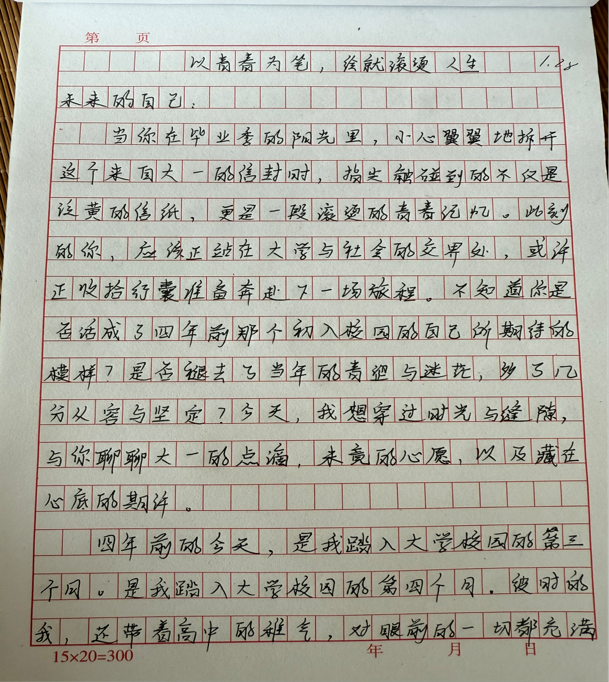 第 页
以青春为笔，绘就滚烫人生 1.28
未来的自己：
当你在毕业季的阳光里，小心翼翼地拆开
这个来自大一的信封时，指尖触碰到的不仅是
泛黄的信纸，更是一段滚烫的青春记忆。此刻
的你，应该正站在大学与社会的交界处，或许
正收拾行囊准备奔赴下一场旅程。不知道你是
否活成了四年前那个初入校园的自己所期待的
模样？是否褪去了当年的青涩与迷茫，多了几
分从容与坚定？今天，我想穿过时光与缝隙，
与你聊聊大一的点滴，未竟的心愿，以及藏在
心底的期许。
四年前的今天，是我踏入大学校园的第三
个月。是我踏入大学校园的第四个月。彼时的
我，还带着高中的稚气，对眼前的一切都充满
15×20=300 年 月 日